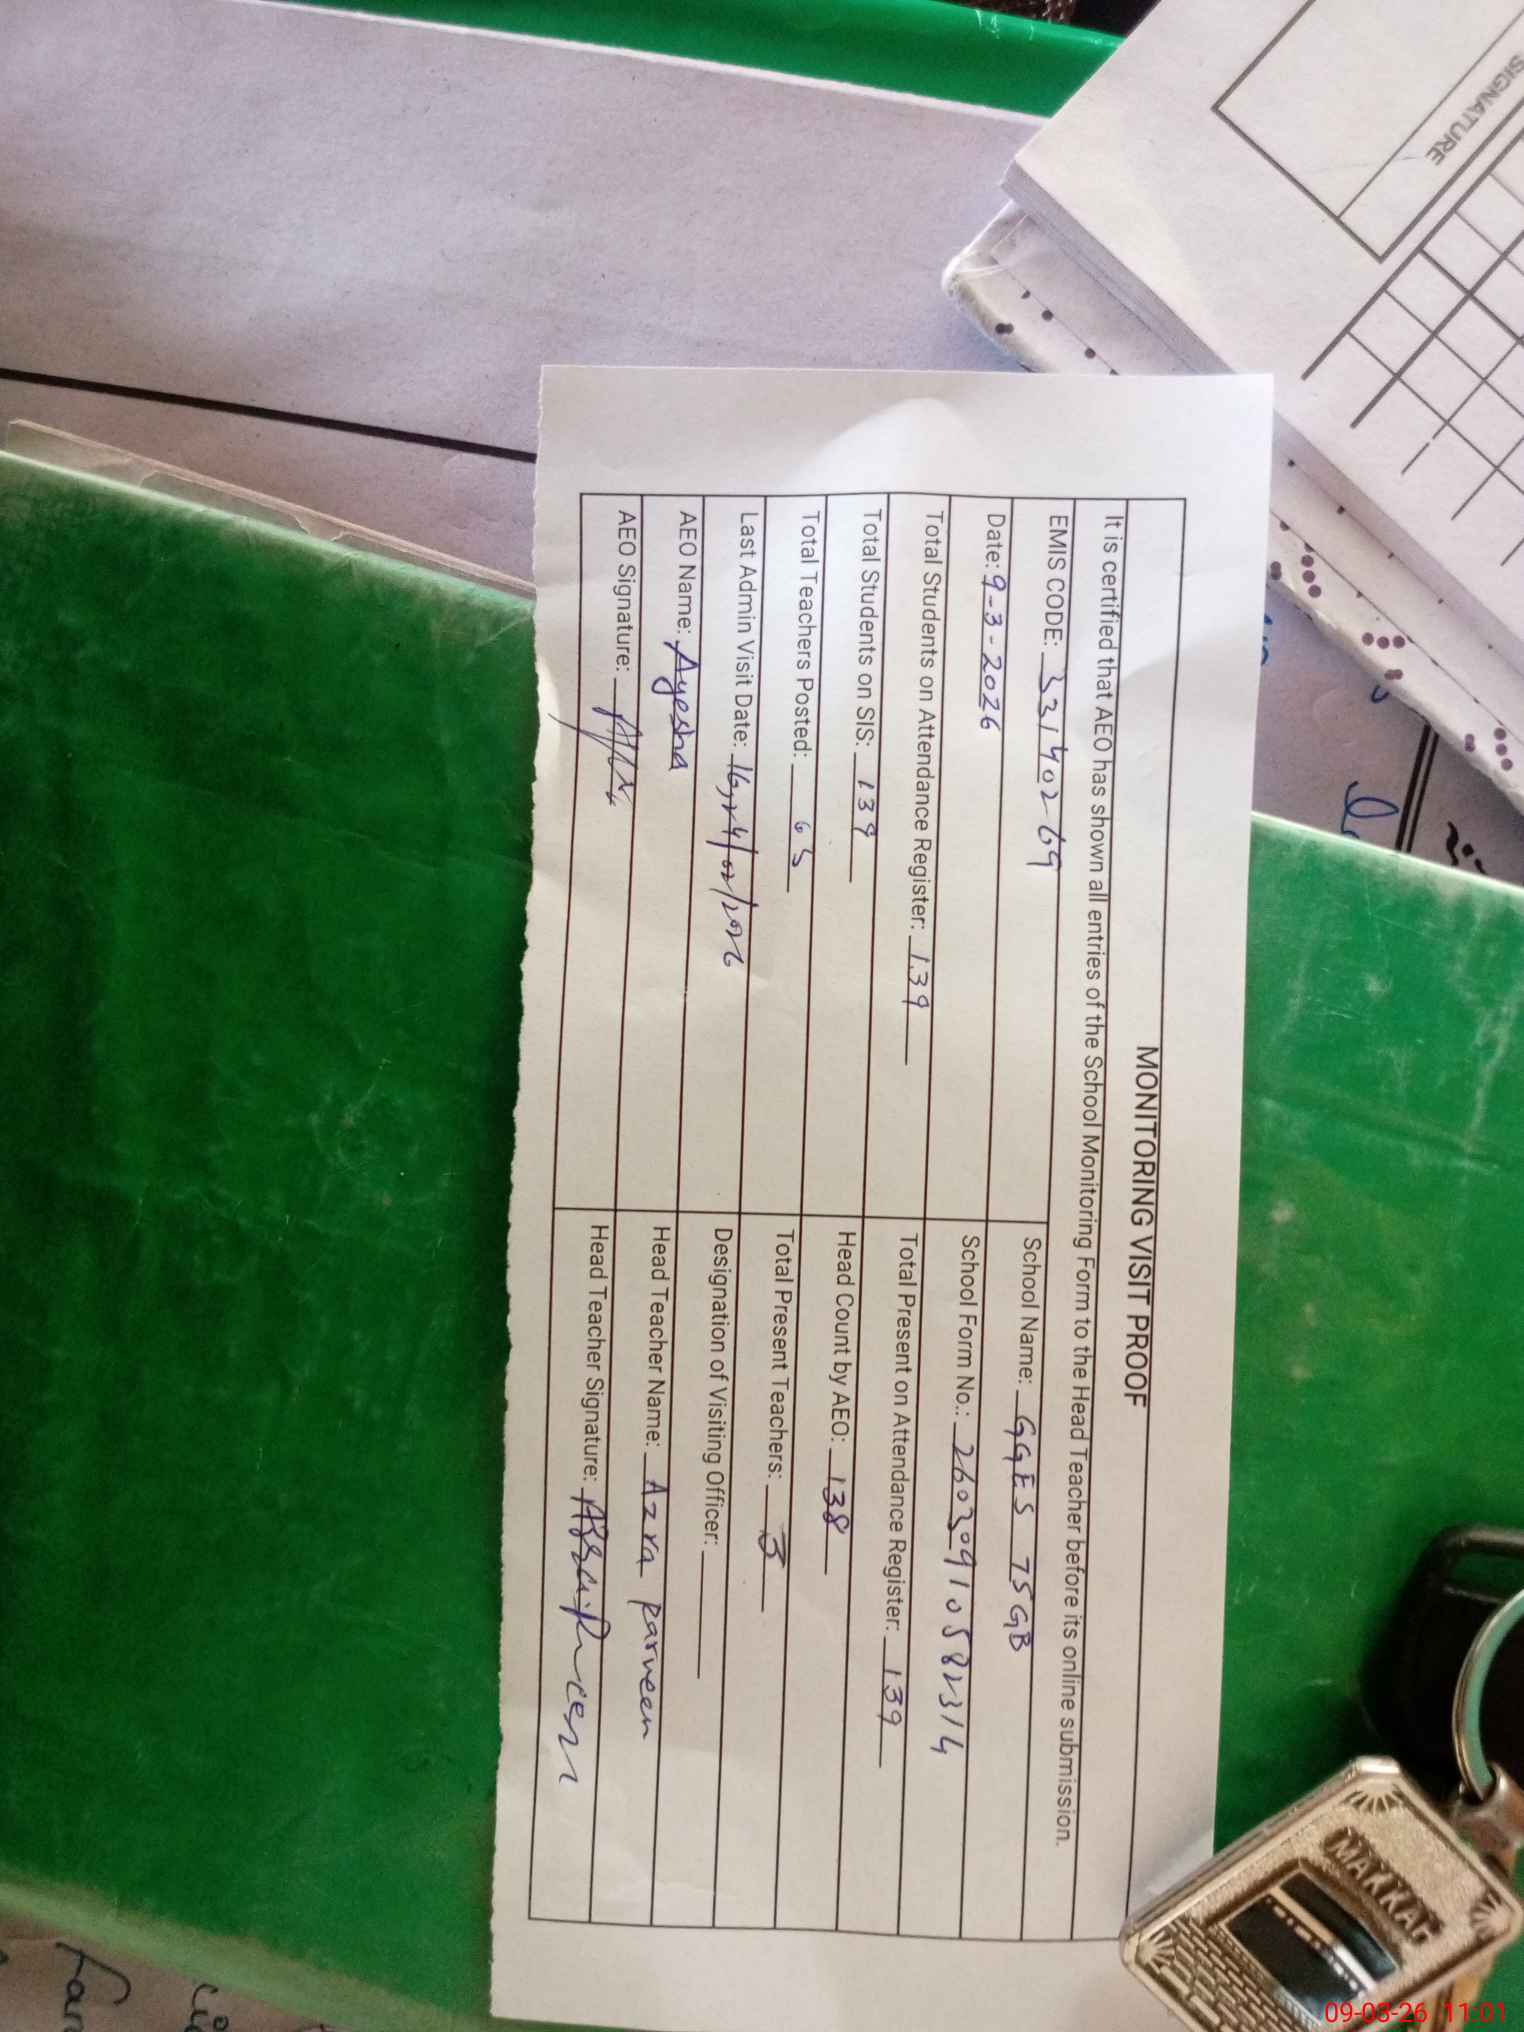 MONITORING VISIT PROOF
It is certified that AEO has shown all entries of the School Monitoring Form to the Head Teacher before its online submission.
EMIS CODE: 33140269
School Name: GGES 75GB
Date: 9-3-2026
School Form No.: 26030910582314
Total Students on Attendance Register: 139
Total Present on Attendance Register: 139
Total Students on SIS: 139
Head Count by AEO: 138
Total Teachers Posted: 03
Total Present Teachers: 3
Last Admin Visit Date: /02/2026
Designation of Visiting Officer:
AEO Name: Ayesha
Head Teacher Name: Azra Parveen
AEO Signature:
Head Teacher Signature:
SIGNATURE
MAKKAH
09-03-26 11:01